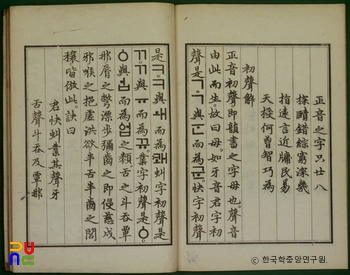 正音之字只廿八
探賾錯綜窮深幾
指遠言近牖民易
天授何曾智巧為
初聲解
正音初聲即韻書之字母也聲音
由此而生故曰母如牙音君字初
聲是ㄱㄱ與ᅟᅮᆫ而為군快字初聲
是ㅋㅋ與ㅙ而為쾌虯字初聲是
ㄲㄲ與ㅠ而為뀨業字初聲是ㆁ
ㆁ與ᅟᅥᆸ而為ᅌᅥᆸ之類舌之斗吞覃
那脣之彆漂步彌齒之即侵慈戌
邪喉之挹虛洪欲半舌半齒之閭
穰皆倣此訣曰
君快虯業其聲牙
舌聲斗吞及覃那
©한국학중앙연구원.